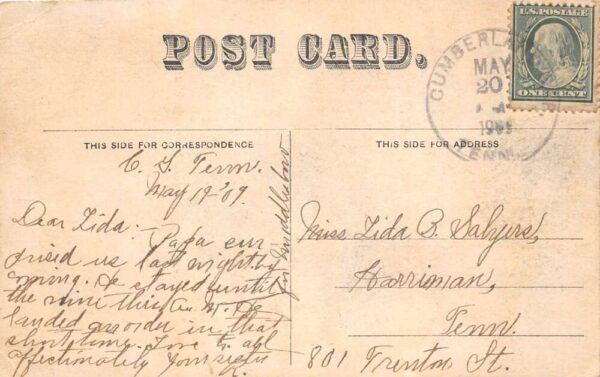 POST CARD.
U.S. POSTAGE
ONE CENT
CUMBERLA
MAY
20
TENN
THIS SIDE FOR CORRESPONDENCE
THIS SIDE FOR ADDRESS
C. G. Tenn.
May 19-'09.
Dear Lida:- Papa sur
prised us last night by
coming. He stayed until
the nine this A.M. He
landed an order in that
short time. Love to all
affectionately your sister
for Middlesboro
Miss Lida B. Salyers,
Harriman,
Tenn.
801 Trenton St.